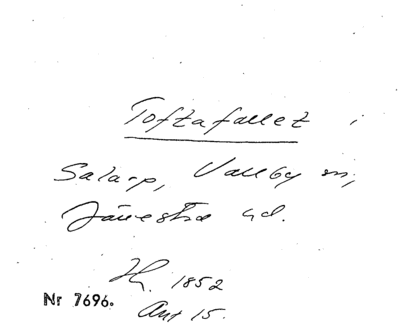 Toftafallet i
Salarp, Vallby sn,
Järrestad hd.
1852
Nr 7696.
Ant 15.